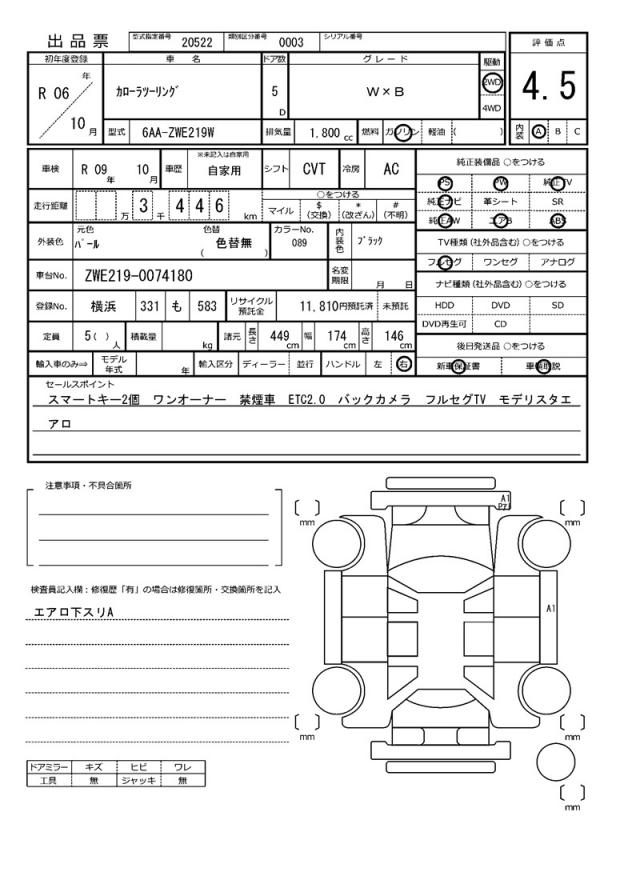 出品票 型式指定番号 20522 類別区分番号 0003 シリアル番号
評価点
初年度登録 車名 ドア数 グレード 駆動
R 06 年 10 月 カローラツーリング 5 D W×B 2WD 4WD 4.5
型式 6AA-ZWE219W 排気量 1.800 cc 燃料 ガソリン 軽油 ( ) 内装 A B C
車検 R 09 年 10 月 車歴 ※未記入は自家用 自家用 シフト CVT 冷房 AC
走行距離 万 3 千 4 4 6 km ○をつける マイル $ (交換) * (改ざん) # (不明)
外装色 元色 パール 色替 ( 色替無 ) カラーNo. 089 内装色 ブラック
車台No. ZWE219-0074180 名変期限 月 日
登録No. 横浜 331 も 583 リサイクル預託金 11,810円預託済 未預託
定員 5( ) 人 積載量 kg 諸元 長さ 449 cm 幅 174 cm 高さ 146 cm
輸入車のみ⇒ モデル年式 年 輸入区分 ディーラー 並行 ハンドル 左 右
純正装備品 ○をつける
PS PW 純正TV
純正ナビ 革シート SR
純正AW エアB ABS
TV種類(社外品含む)○をつける
フルセグ ワンセグ アナログ
ナビ種類(社外品含む)○をつける
HDD DVD SD
DVD再生可 CD
後日発送品 ○をつける
新車保証書 車輌取説
セールスポイント
スマートキー2個 ワンオーナー 禁煙車 ETC2.0 バックカメラ フルセグTV モデリスタエ
アロ
注意事項・不具合箇所
検査員記入欄：修復歴「有」の場合は修復箇所・交換箇所を記入
エアロ下スリA
ドアミラー キズ ヒビ ワレ
工具 無 ジャッキ 無
A1
〔 〕 〔 〕
mm mm
A1
〔 〕 〔 〕
mm mm
〔 〕
mm